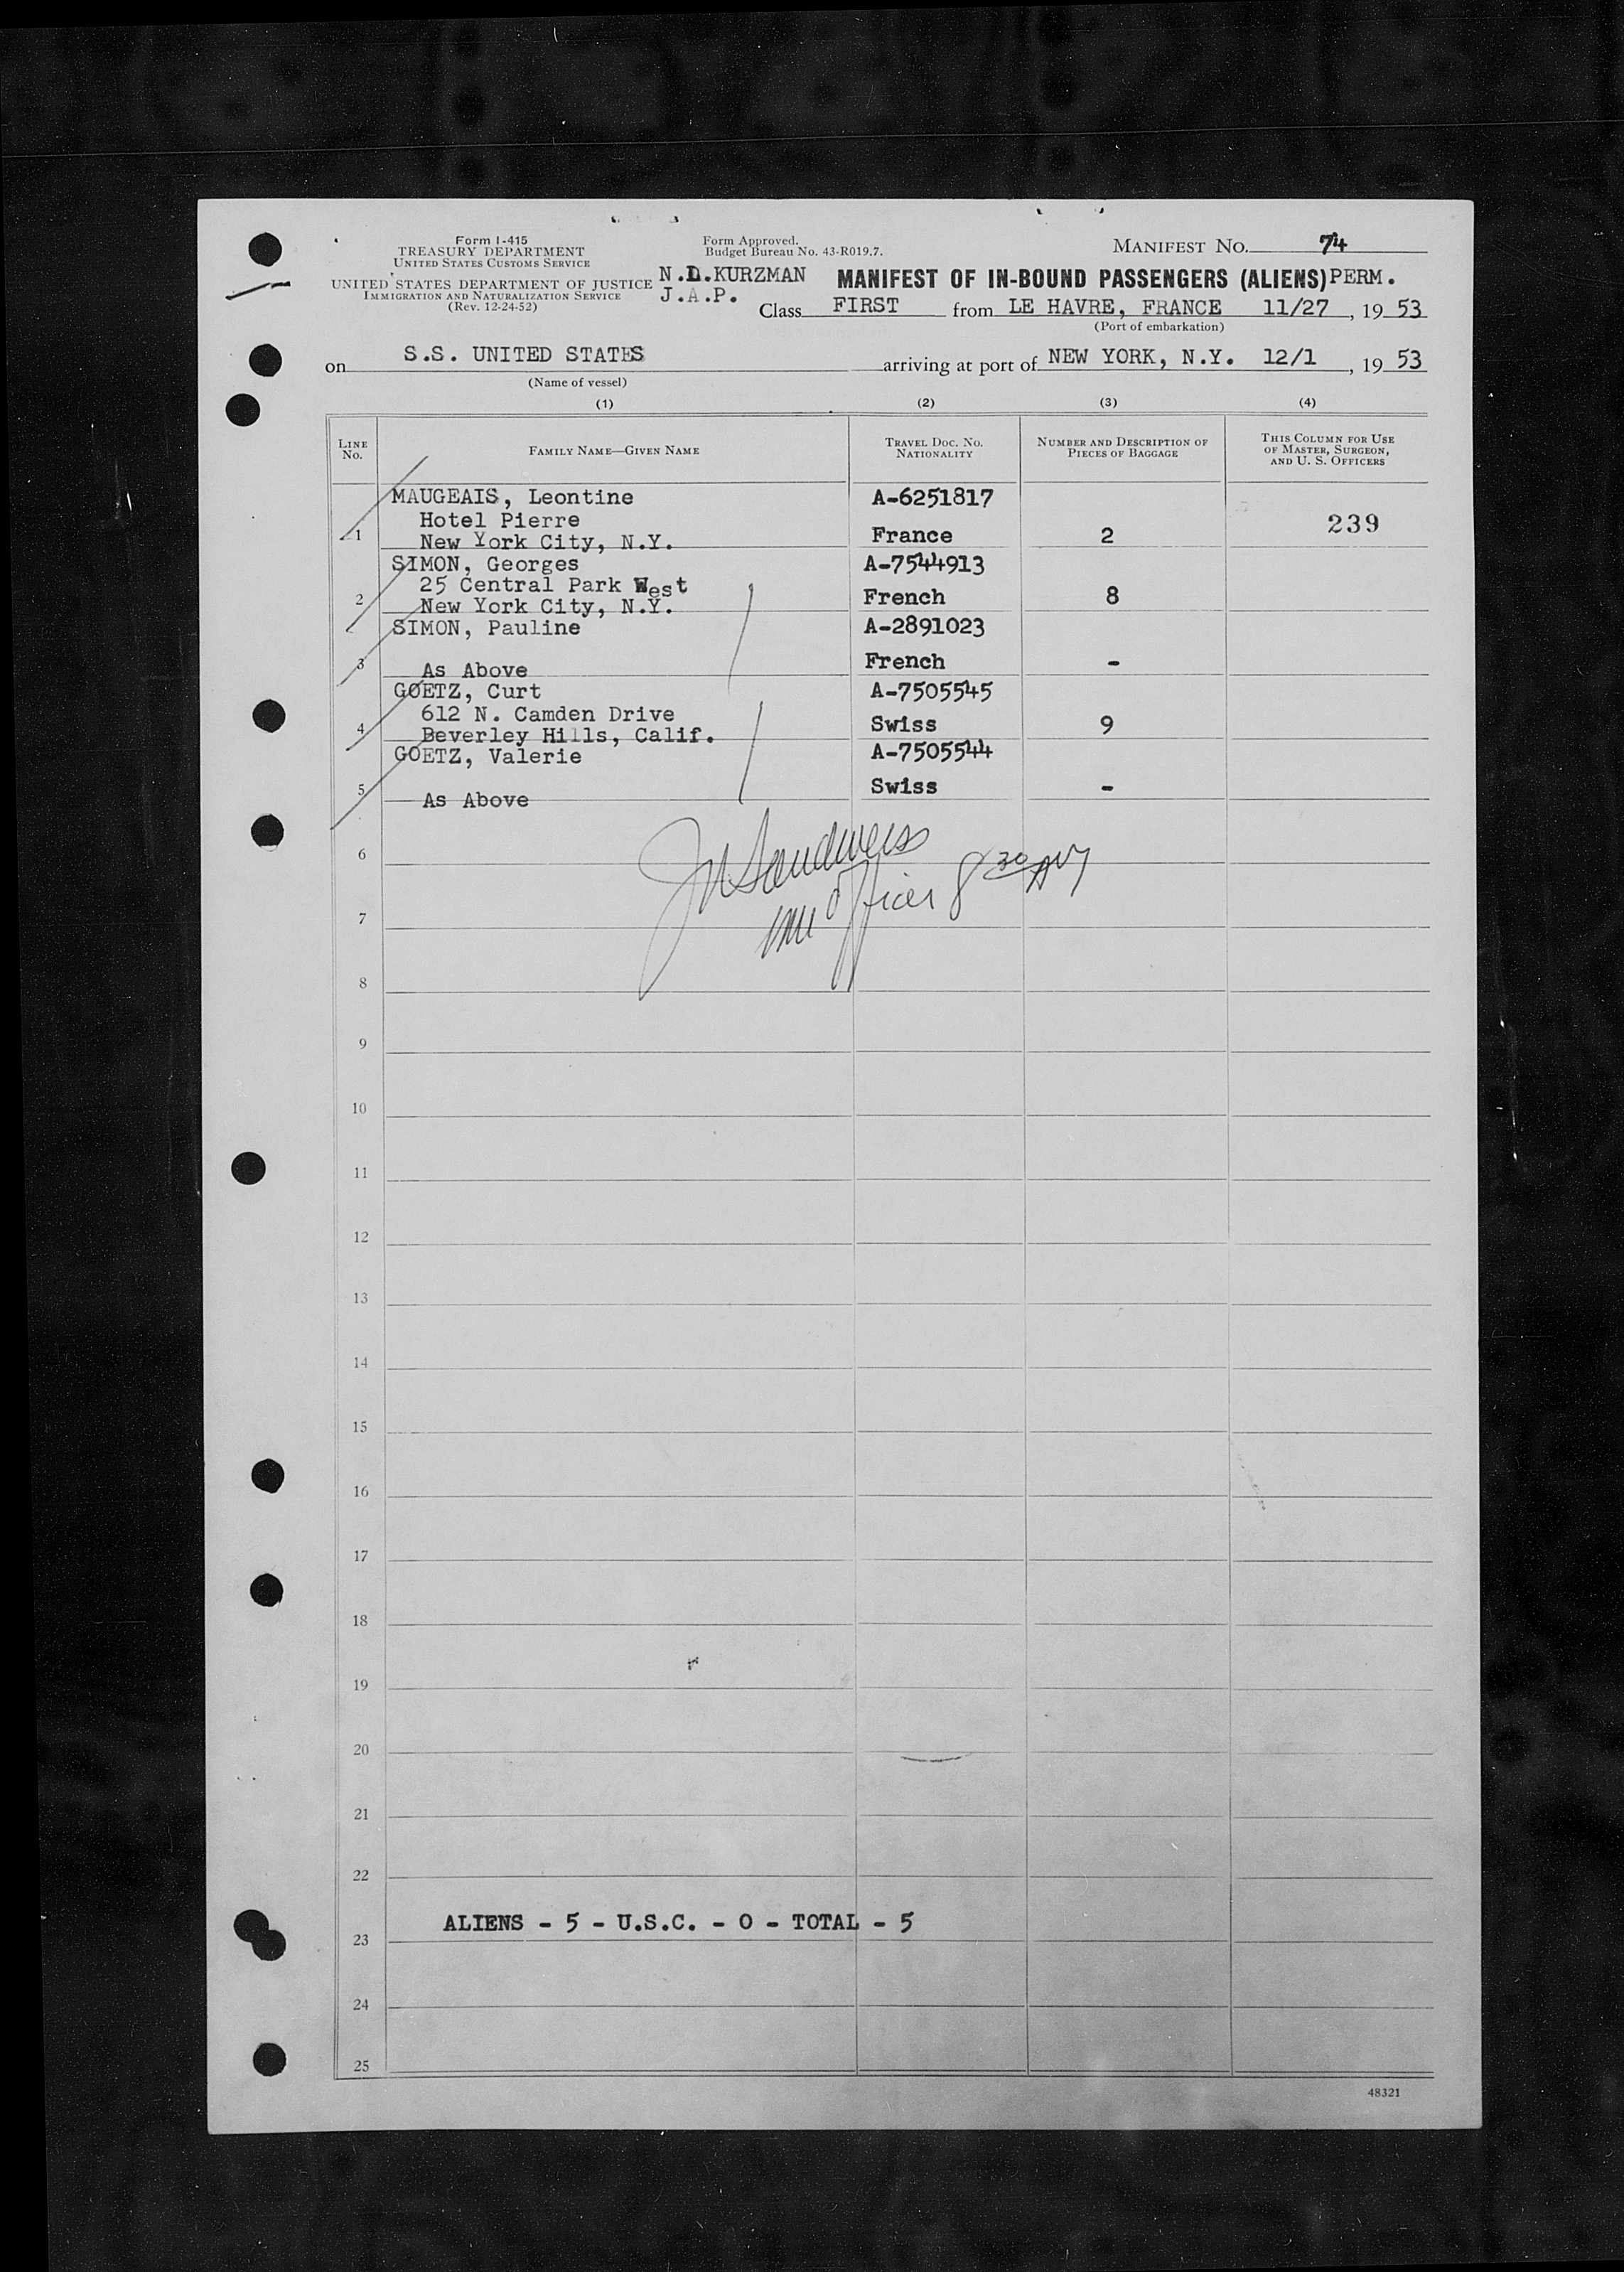 Form I-415
TREASURY DEPARTMENT
UNITED STATES CUSTOMS SERVICE
UNITED STATES DEPARTMENT OF JUSTICE
IMMIGRATION AND NATURALIZATION SERVICE
(Rev. 12-24-52)
Form Approved.
Budget Bureau No. 43-R019.7.
N.D.KURZMAN
J.A.P.
MANIFEST NO. 74
MANIFEST OF IN-BOUND PASSENGERS (ALIENS) PERM.
Class FIRST from LE HAVRE, FRANCE 11/27, 19 53
(Port of embarkation)
on S.S. UNITED STATES arriving at port of NEW YORK, N.Y. 12/1, 19 53
(Name of vessel)
(1) (2) (3) (4)
LINE NO.
FAMILY NAME—GIVEN NAME
TRAVEL DOC. NO. NATIONALITY
NUMBER AND DESCRIPTION OF PIECES OF BAGGAGE
THIS COLUMN FOR USE OF MASTER, SURGEON, AND U. S. OFFICERS
MAUGEAIS, Leontine A-6251817
Hotel Pierre 239
1 New York City, N.Y. France 2
SIMON, Georges A-7544913
25 Central Park West
2 New York City, N.Y. French 8
SIMON, Pauline A-2891023
3 As Above French -
GOETZ, Curt A-7505545
612 N. Camden Drive
4 Beverley Hills, Calif. Swiss 9
GOETZ, Valerie A-7505544
5 As Above Swiss -
6
7
8
9
10
11
12
13
14
15
16
17
18
19
20
21
22
ALIENS - 5 - U.S.C. - 0 - TOTAL - 5
23
24
25
48321